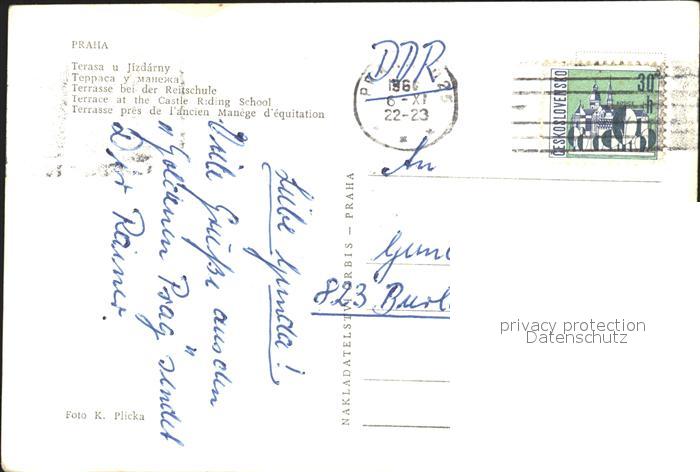 PRAHA
Terasa u Jízdárny
Терраса у манежа
Terrasse bei der Reitschule
Terrace at the Castle Riding School
Terrasse près de l'ancien Manège d'équitation
Liebe Gunda!
Viele Grüße aus den
"Goldenen Prag" sendet
Dir Rainer.
Foto K. Plicka
NAKLADATELSTVÍ ORBIS — PRAHA
DDR
PR 25
196
8-XI
22-23
ČESKOSLOVENSKO
30
h
An
823
privacy protection
Datenschutz